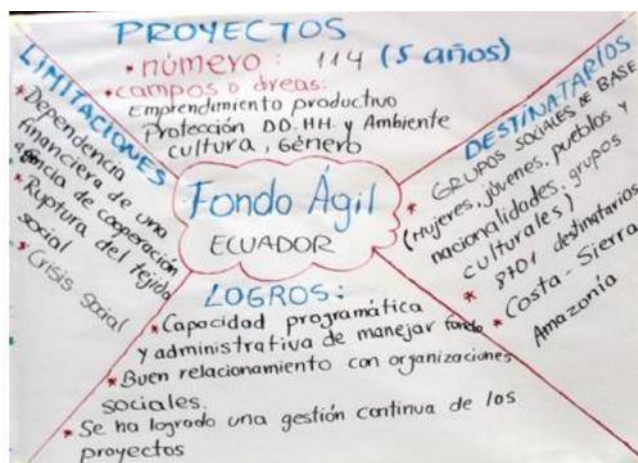 PROYECTOS
• número: 114 (5 años)
• campos o áreas:
Emprendimiento productivo
Protección DD.HH. y Ambiente
cultura, Género
LIMITACIONES
* Dependencia
financiera de una
agencia de cooperación
* Ruptura del tejido
social
* Crisis social
Fondo Ágil
ECUADOR
DESTINATARIOS
* GRUPOS SOCIALES DE BASE
(Mujeres, jóvenes, pueblos y
nacionalidades, grupos
culturales)
* 8701 destinatarios
* Costa - Sierra
Amazonía
LOGROS:
* Capacidad programática
y administrativa de manejar fondo
* Buen relacionamiento con organizaciones
sociales.
* Se ha logrado una gestión continua de los
proyectos